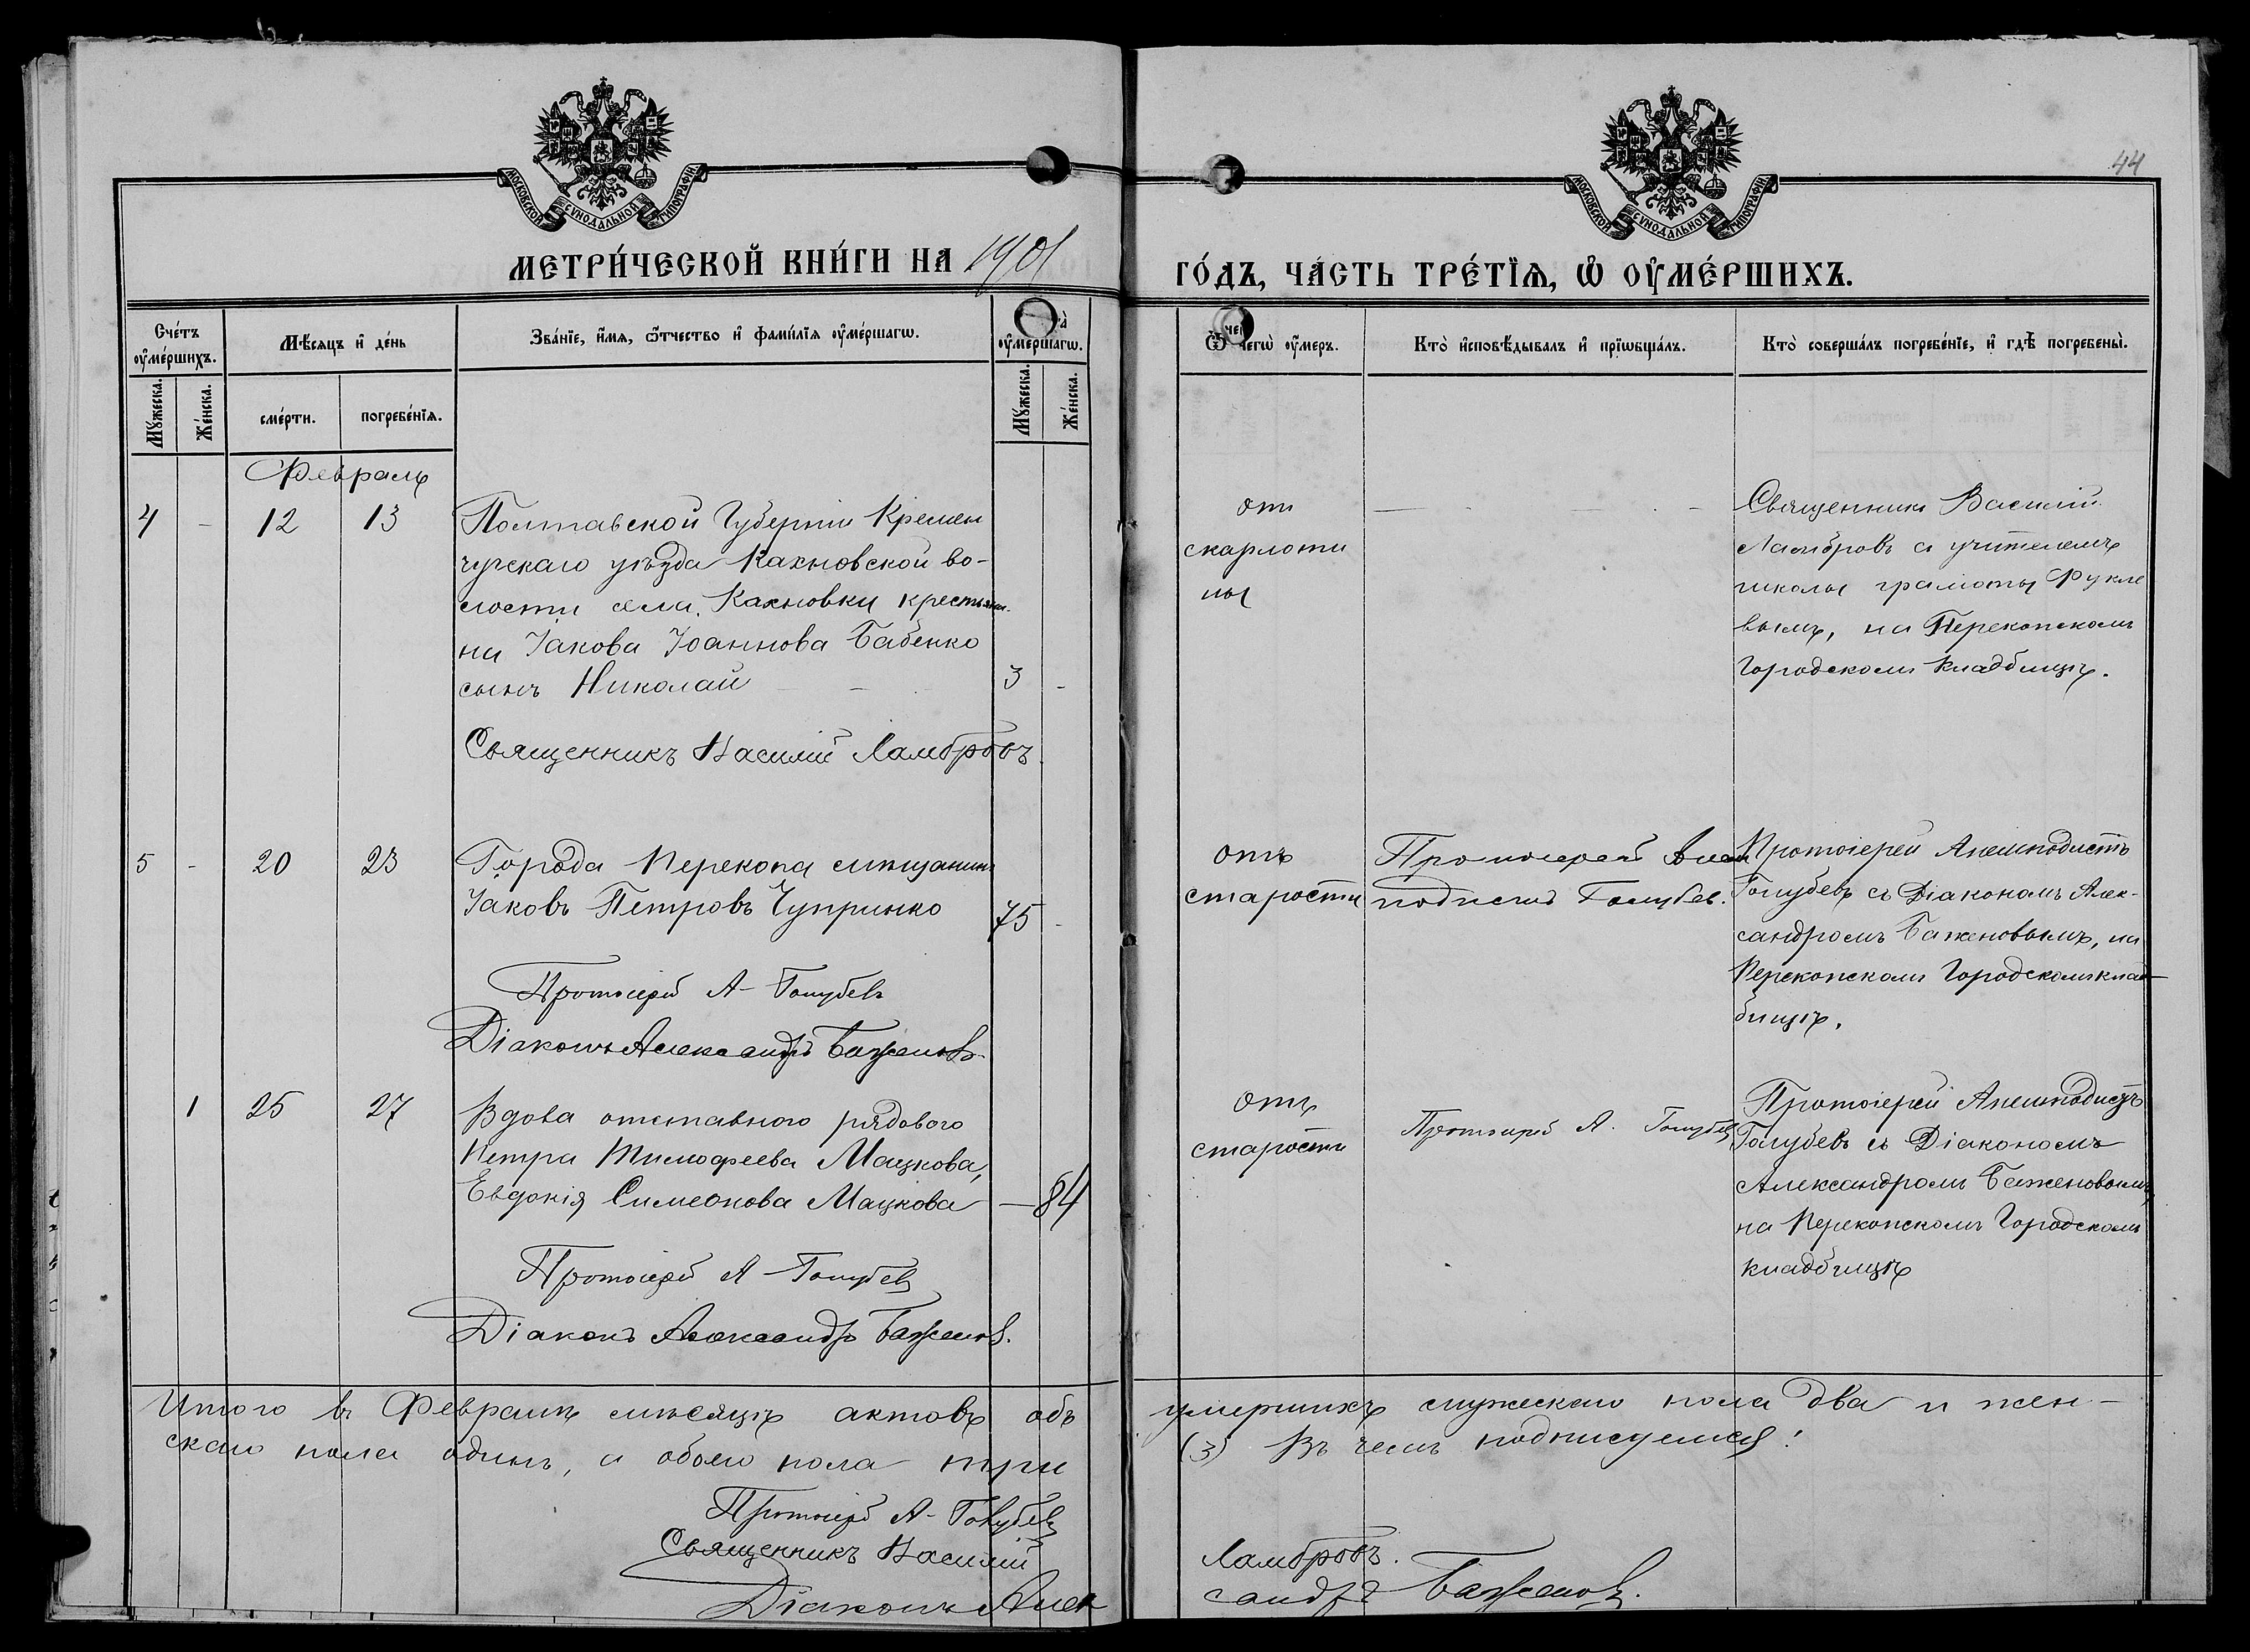 44
МОСКОВСКОЙ СУНОДАЛЬНОЙ ТИПОГРАФІИ
МОСКОВСКОЙ СУНОДАЛЬНОЙ ТИПОГРАФІИ
МЕТРИ́ЧЕСКОЙ КНИ́ГИ НА 1901
ГО́ДЪ, ЧА́СТЬ ТРЕ́ТЇѦ, Ѡ҆ ОУ҆МЕ́РШИХЪ.
Сче́тъ оу҆ме́ршихъ.
Мѣ́сяцъ и҆ де́нь
Зва́нїе, и҆́мѧ, ѻ҆́тчество и҆ фами́лїѧ оу҆ме́ршагѡ.
оу҆ме́ршагѡ.
Ѿ чегѡ̀ оу҆́меръ.
Кто̀ и҆сповѣ́дывалъ и҆ прїѡбща́лъ.
Кто̀ соверша́лъ погребе́нїе, и҆ гдѣ̀ погребены̀.
Мꙋ́жеска.
Же́нска.
сме́рти.
погребе́нїѧ.
Мꙋ́жеска.
Же́нска.
Февраль
4 - 12 13
Полтавской Губерніи Кремен
чугскаго уѣзда Кахновской во-
лости села Кахновки крестьяни-
на Іакова Іоаннова Бабенко
сынъ Николай - - 3 -
Священникъ Василій Ламбровъ.
отъ
скарлоти
ны
Священникъ Василій
Ламбровъ съ учителемъ
школы грамоты Фукле
вымъ, на Перекопскомъ
Городскомъ кладбищѣ.
5 - 20 23
Города Перекопа мѣщанинъ
Іаковъ Петровъ Чупринко 75 -
Протоіерей А. Голубевъ
Діаконъ Александръ Баженовъ.
отъ
старости
Протоіерей Анем
подистъ Голубев.
Протоіерей Анемподистъ
Голубевъ съ Діакономъ Алек-
сандромъ Баженовымъ, на
Перекопскомъ Городскомъ клад-
бищѣ.
1 25 27
Вдова отставного рядового
Петра Тимофеева Мацкова,
Евдокія Симеонова Мацкова — 84
Протоіерей А. Голубевъ
Діаконъ Александръ Баженовъ.
отъ
старости
Протоіерей А. Голубевъ
Протоіерей Анемподистъ
Голубевъ съ Діакономъ
Александромъ Баженовымъ,
на Перекопскомъ Городскомъ
кладбищѣ
Итого въ Февралѣ мѣсяцѣ актовъ объ умершихъ мужескаго пола два и жен-
скаго пола одинъ, а обоего пола три (3) Въ чемъ подписуемся:
Протоіерей А. Голубевъ
Священникъ Василій Ламбровъ.
Діаконъ Александръ Баженовъ.